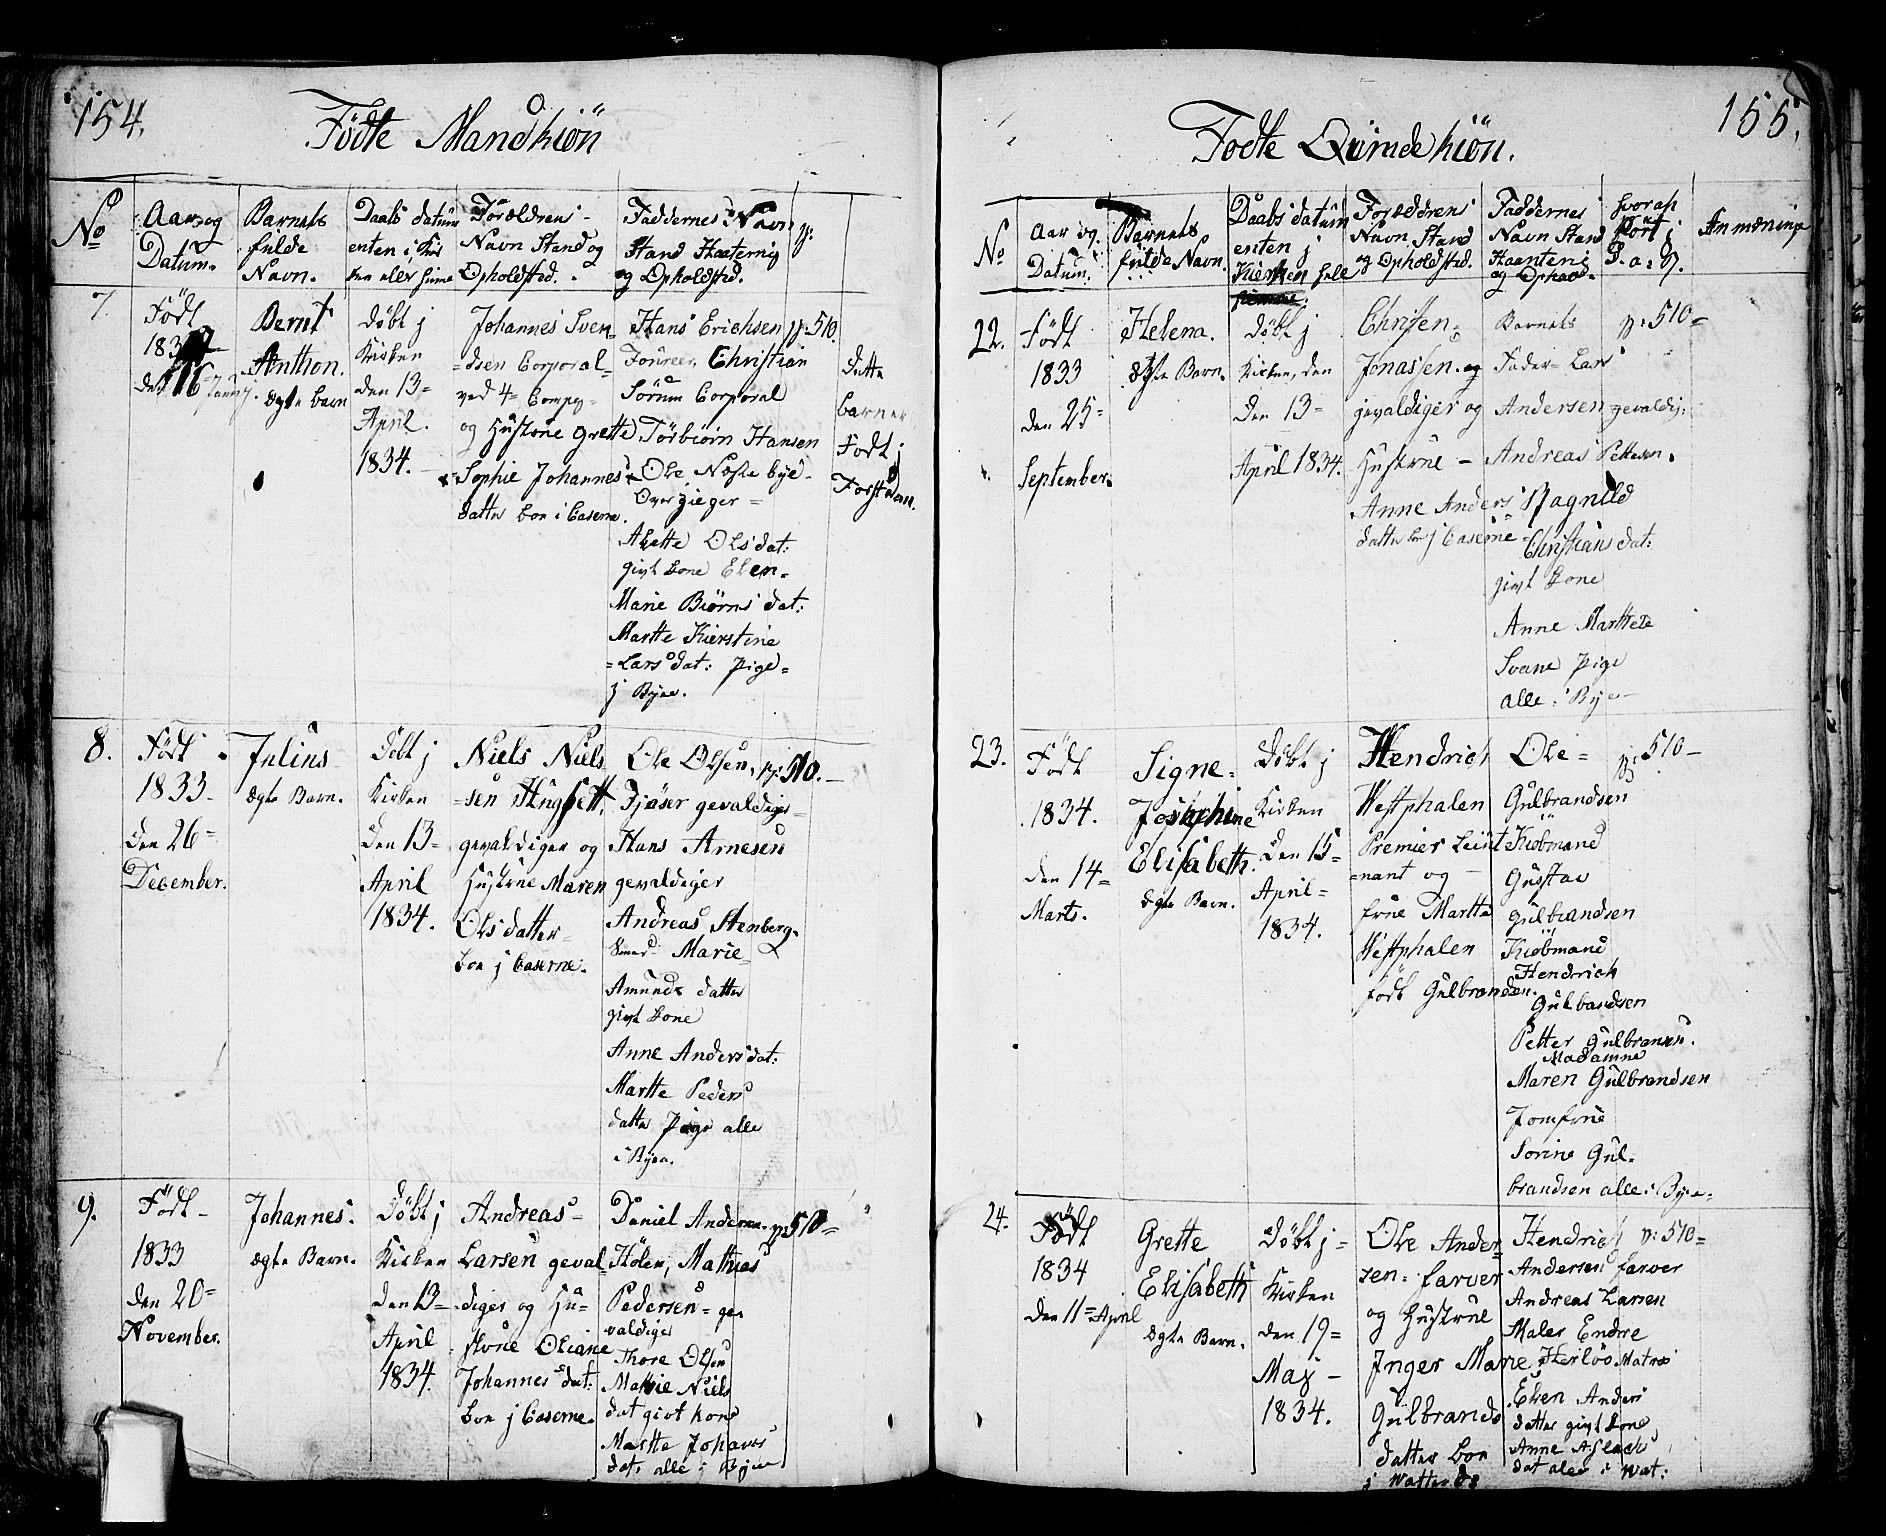 154.
Födte Mandkiön
No
Aar og
Datum.
Barnets
fulde
Navn.
Daabs datum
enten i Kir
ken eller hiime
Forældrens
Navn Stand og
Opholdsted.
Faddernes Navn
Stand Haatering
og Opholdsted.
p:
7.
Födt
den 16
Bernt
Anthon.
ægte barn
döbt j
Kirken
den 13=
April.
1834.
Johannes Sven
=dsen Corporal=
ved 4=
og Hustrue Grette
Sophie Johannes
datter boe i Caserne.
Hans Erichsen
Foureer, Christian
Sörum Corporal
Törbiörn Hansen
Ole Næste bye-
Overjieger=
Alette Olsdat:
givt kone Elen=
Marie Biörns dat:
Martte Kierstine
=Larsdat: pige=
j Byen.
p: 510.
dette
barn er
Födt j
8.
Födt
1833-
den 26=
December.
Julius
ægte Barn.
Döbt j
Kirken
den 13=
April
1834.
Niels Niels
=sen
gevaldiger og
Hustrue Maren
Olsdatter
boe j Caserne.
Ole Olsen,
Fjöser gevaldiger
Hans Arnesen
gevaldiger
Andreas Stenberg
Smed Marie
Amunds datter
givt kone
Anne Andersdat:
Martte Peders
datter pige alle
i Byen.
p: 510.-
9.
Födt-
1833
den 20=
November.
Johannes.
ægte Barn.
Döbt j
Kirken
den 13=
April
1834.
Andreas-
Larsen geval=
diger og Hu=
strue Oliane
Johannes dat:
boe j Caserne.
Daniel Andersen.
Holen, Mathias
Pedersen= ge=
valdiger
Thore Olsen
Niels
dat givt kone
Martte Johanes
dat: alle i Byen
p: 510=
155.
Födte Qvindekiön.
No
Aar og.
Datum.
Barnets
fulde Navn.
Daabs datum
enten j
Kierken
Forældrens
Navn Stand
og Opholdsted.
Faddernes
Navn Stand
Haantering
og Ophold.
hvorah
fört j
P. a: g.
Anmæninge
22.
Födt
1833
den 25=
September.
Helena.
ægte Barn.
döbt j
Kirken, den
Den 13=
April 1834.
Christen=
Jonassen. og
gevaldiger og
Hustrue-
Anne Anders
datter boe j Caserne
Barnets
Fader= Lars
Andersen=gevaldig:
Andreas Pettesen.
Ragnild
Christians dat:
givt kone
Anne Marthete
Svane pige
alle i Bye-
p: 510=
23.
Födt
1834.
den 14=
Marts.
Signe=
Josephine
Elisabeth.
ægte Barn.
Döbt j
Kirken
den 15=
April=
1834.
Hendrich
Westphalen
Premier Leiut
=nant og-
frue Martte
Westphalen
född Gulbrandsen.
Ole=
Gulbrandsen
Kiöbmand
Gustav
Gulbrandsen
Kiöbmand
Hendrich
Gulbandsen
Petter Gulbransen.
Madamme
Maren Gulbrandsen
Jomfrue
Sorine Gul-
brandsen alle i Byen.
p: 510-
24.
Födt
1834
den 11= April
Grette
Elisabeth
ægte Barn.
Döbt j=
Kirken
den 19=
Maj-
1834.
Ole Ander=
sen= farver
og Hustrue
Inger Marie
Gulbrands
datter boe
Hendrich
Andersen farver
Andreas Larsen
Maler Endre
Elen Anders
datter givt kone,
Anne Aslachs
dat alle i Wat:
p: 510=